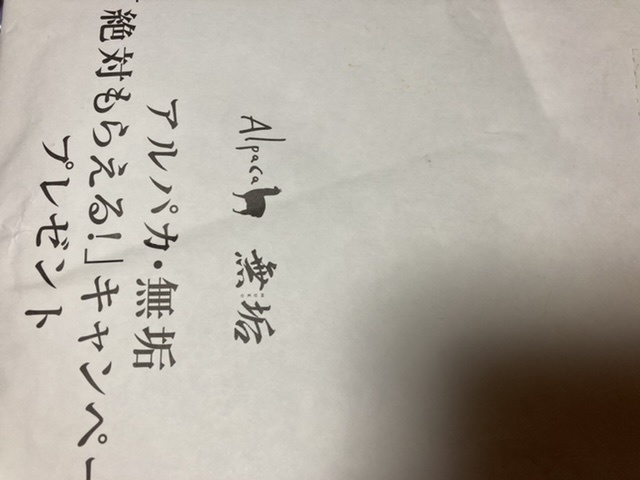 Alpaca 無垢
アルパカ・無垢
「絶対もらえる!」キャンペー
プレゼント